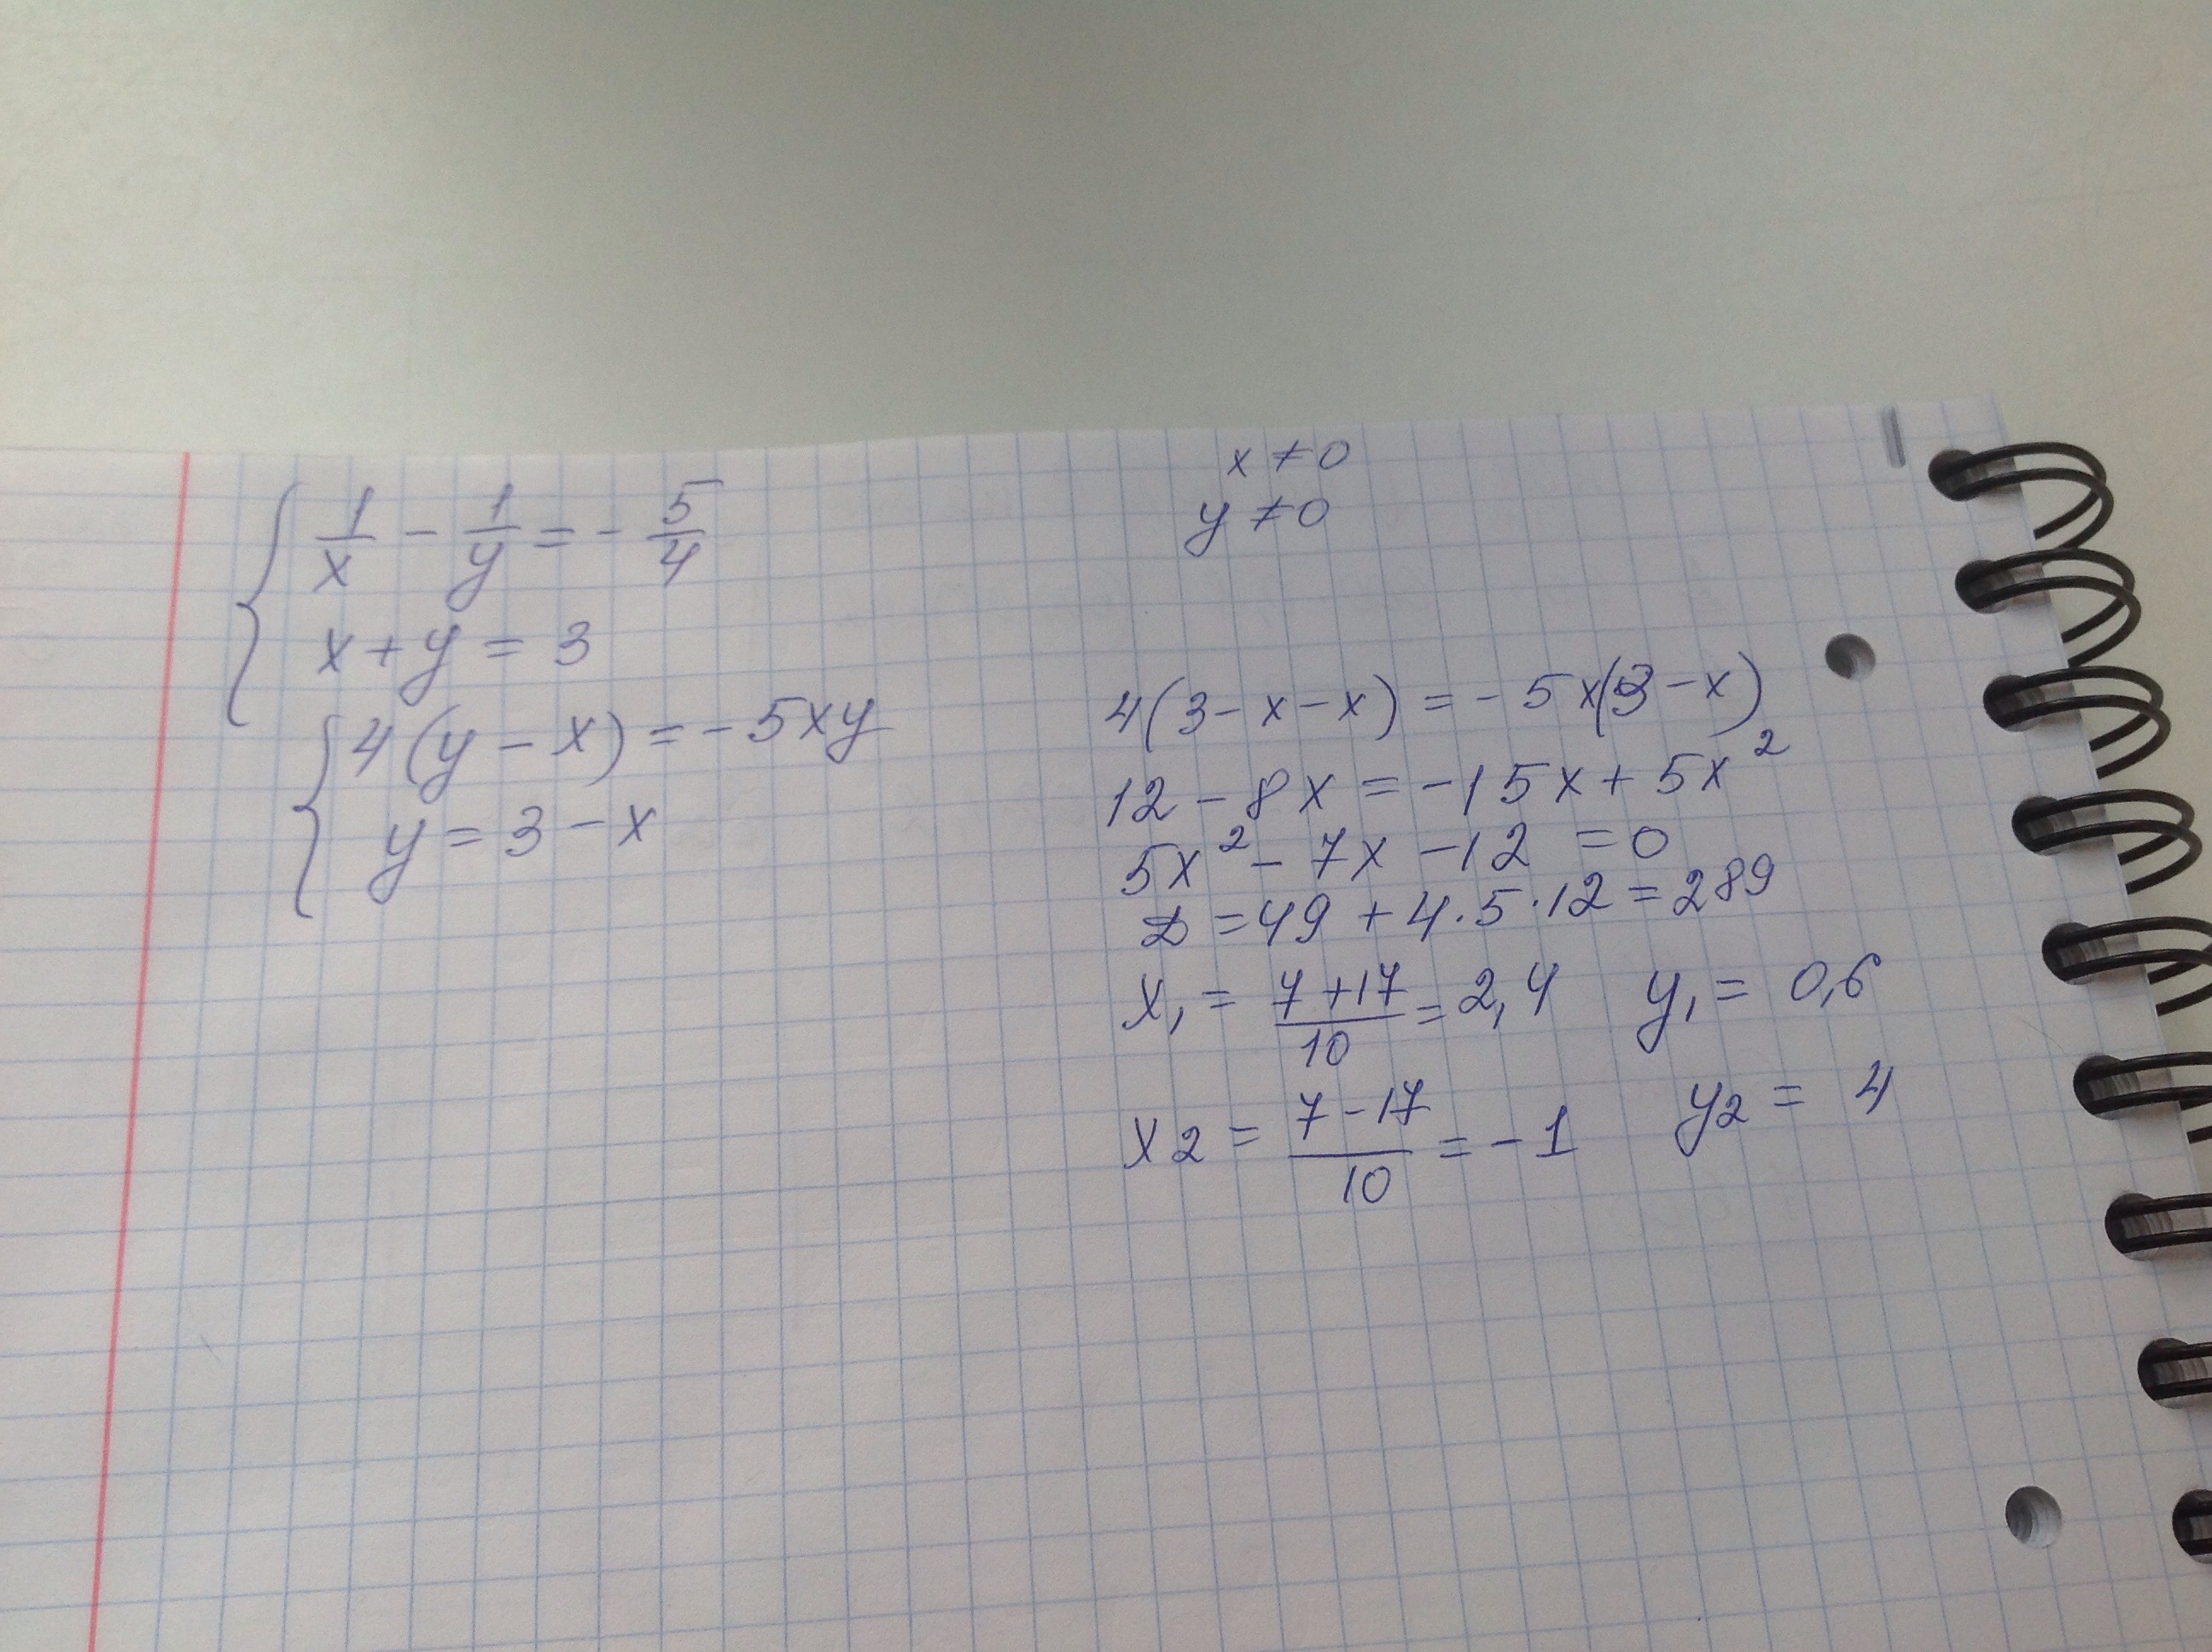 1/x - 1/y = - 5/4
x + y = 3
4(y - x) = - 5xy
y = 3 - x
x ≠ 0
y ≠ 0
4(3 - x - x) = - 5x(3 - x)
12 - 8x = -15x + 5x²
5x² - 7x - 12 = 0
D = 49 + 4·5·12 = 289
x₁ = (7+17)/10 = 2,4 y₁ = 0,6
x₂ = (7-17)/10 = -1 y₂ = 4